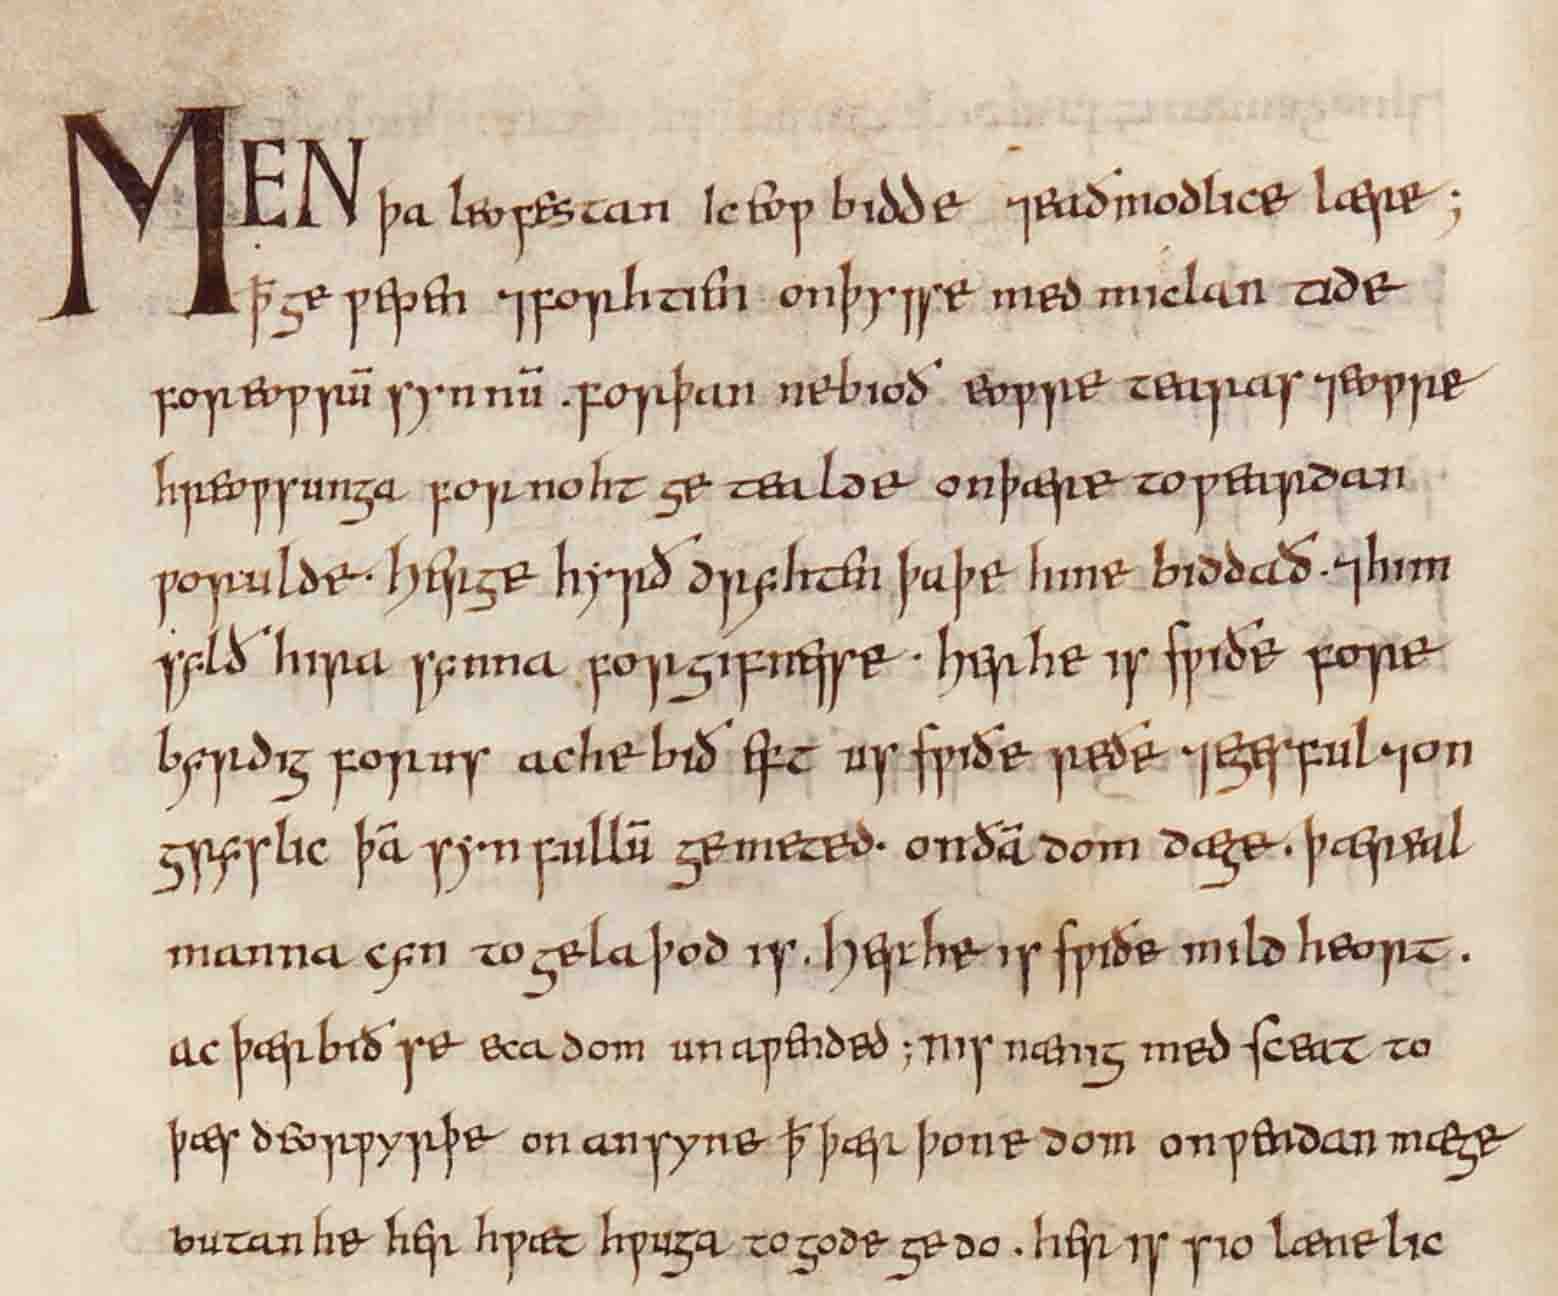 MEN þa leofestan Ic eoƿ bidde ⁊eadmodlice lære;
ꝥge ƿepen ⁊forhtien onþysse medmiclan tide
foreoƿrū synnū. forþan nebioð eoƿre tearas ⁊eoƿre
hreoƿsunga fornoht ge tealde onþære toƿeardan
ƿorulde. hérge hyrð dryhten þaþe hine biddað. ⁊him
sylð hira synna forgifnesse. hér he is sƿiðe fore
byrdig forus ache bið eft us sƿiðe reðe ⁊egesful ⁊on
gryslic þā synfullū gemeted. onðā dom dæge. þær eal
manna cyn to gelaþod is. hér he is sƿiðe mild heort.
ac þær bið se eca dom unaƿended; nis nænig med sceat to
þæs deorƿyrþe on ansyne ꝥ þær þone dom onƿendan mæge
butan he hér hƿæt hƿuga togode gedo. hér is sio lænelic